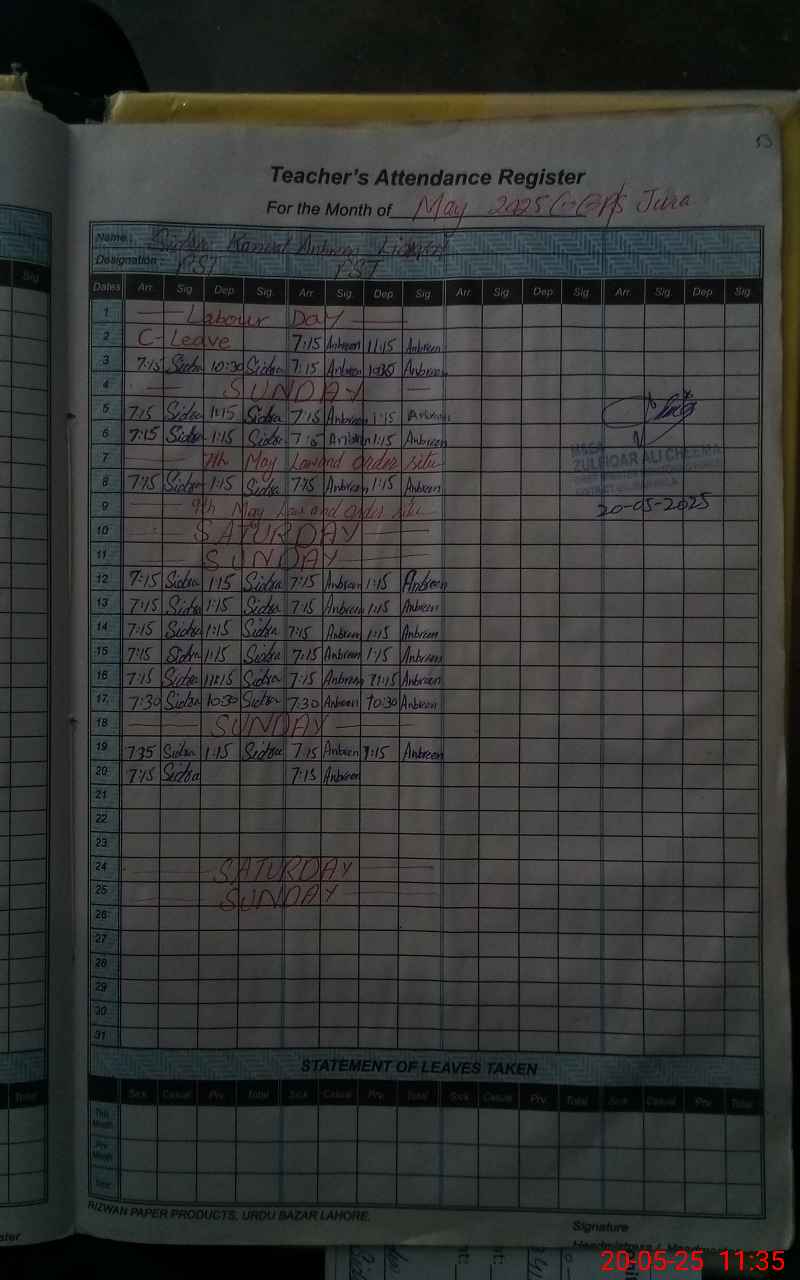 53
Teacher's Attendance Register
For the Month of May 2025 Jura
Name: Sidra Kanwal Anbreen
Designation: PST PST
Dates Arr. Sig. Dep. Sig. Arr. Sig. Dep. Sig. Arr. Sig. Dep. Sig. Arr. Sig. Dep. Sig.
1 Labour DAY
2 C-Leave 7:15 Anbreen 11:15 Anbreen
3 7:15 Sidra 10:30 Sidra 7:15 Anbreen Anbreen
4 SUNDAY
5 7:15 Sidra 1:15 Sidra 7:15 Anbreen 1:15 Anbreen
6 7:15 Sidra 1:15 Sidra 7:15 Anbreen 1:15 Anbreen
7 7th May Law and Order situ
8 7:15 Sidra 1:15 Sidra 7:15 Anbreen 1:15 Anbreen
9 9th May Law and Order situ
10 SATURDAY
11 SUNDAY
ZULFIQAR ALI CHEEMA
20-05-2025
12 7:15 Sidra 1:15 Sidra 7:15 Anbreen 1:15 Anbreen
13 7:15 Sidra 1:15 Sidra 7:15 Anbreen 1:15 Anbreen
14 7:15 Sidra 1:15 Sidra 7:15 Anbreen 1:15 Anbreen
15 7:15 Sidra 1:15 Sidra 7:15 Anbreen 1:15 Anbreen
16 7:15 Sidra 11:15 Sidra 7:15 Anbreen 11:15 Anbreen
17 7:30 Sidra 10:30 Sidra 7:30 Anbreen 10:30 Anbreen
18 SUNDAY
19 7:35 Sidra 1:15 Sidra 7:15 Anbreen 1:15 Anbreen
20 7:15 Sidra 7:15 Anbreen
21
22
23
24 SATURDAY
25 SUNDAY
26
27
28
29
30
31
STATEMENT OF LEAVES TAKEN
Sick Casual Prv. Total Sick Casual Prv. Total Sick Casual Prv. Total Sick Casual Prv. Total
This Month
Prv. Month
Total
RIZWAN PAPER PRODUCTS, URDU BAZAR LAHORE.
Signature
Headmistress / Headmaster
20-05-25 11:35